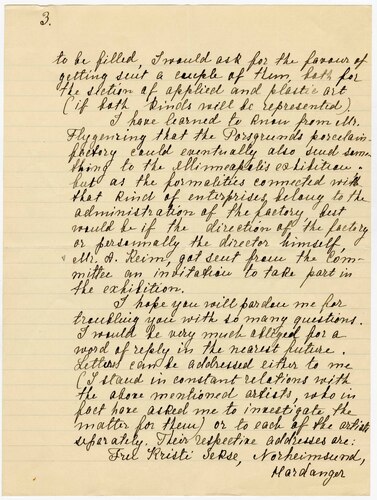 3.
to be filled, I would ask for the favour of
getting sent a couple of them, both for
the section of applied and plastic art
(if both kinds will be represented).
I have learned to know from Mr.
Flygenring that the Porsgrunds porcelain-
factory could eventually also send some
thing to the Minneapolis exhibition -
but as the formalities connected with
that kind of enterprises belong to the
administration of the factory, best
would be if the direction of the factory
or personnally the director himself,
Mr. A. Reim, got sent from the Com-
mittee an invitation to take part in
the exhibition.
I hope you will pardon me for
troubling you with so many questions.
I would be very much obliged for a
word of reply in the nearest future.
Letters can be addressed either to me
(I stand in constant relations with
the above mentioned artists, who in
fact have asked me to investigate the
matter for them) or to each of the artists
separately. Their respective addresses are:
Kristi Sekse, Norheimsund,
Hardanger